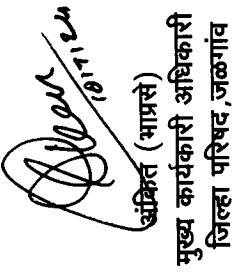 अंकित (भाप्रसे)
मुख्य कार्यकारी अधिकारी
जिल्हा परिषद,जळगांव